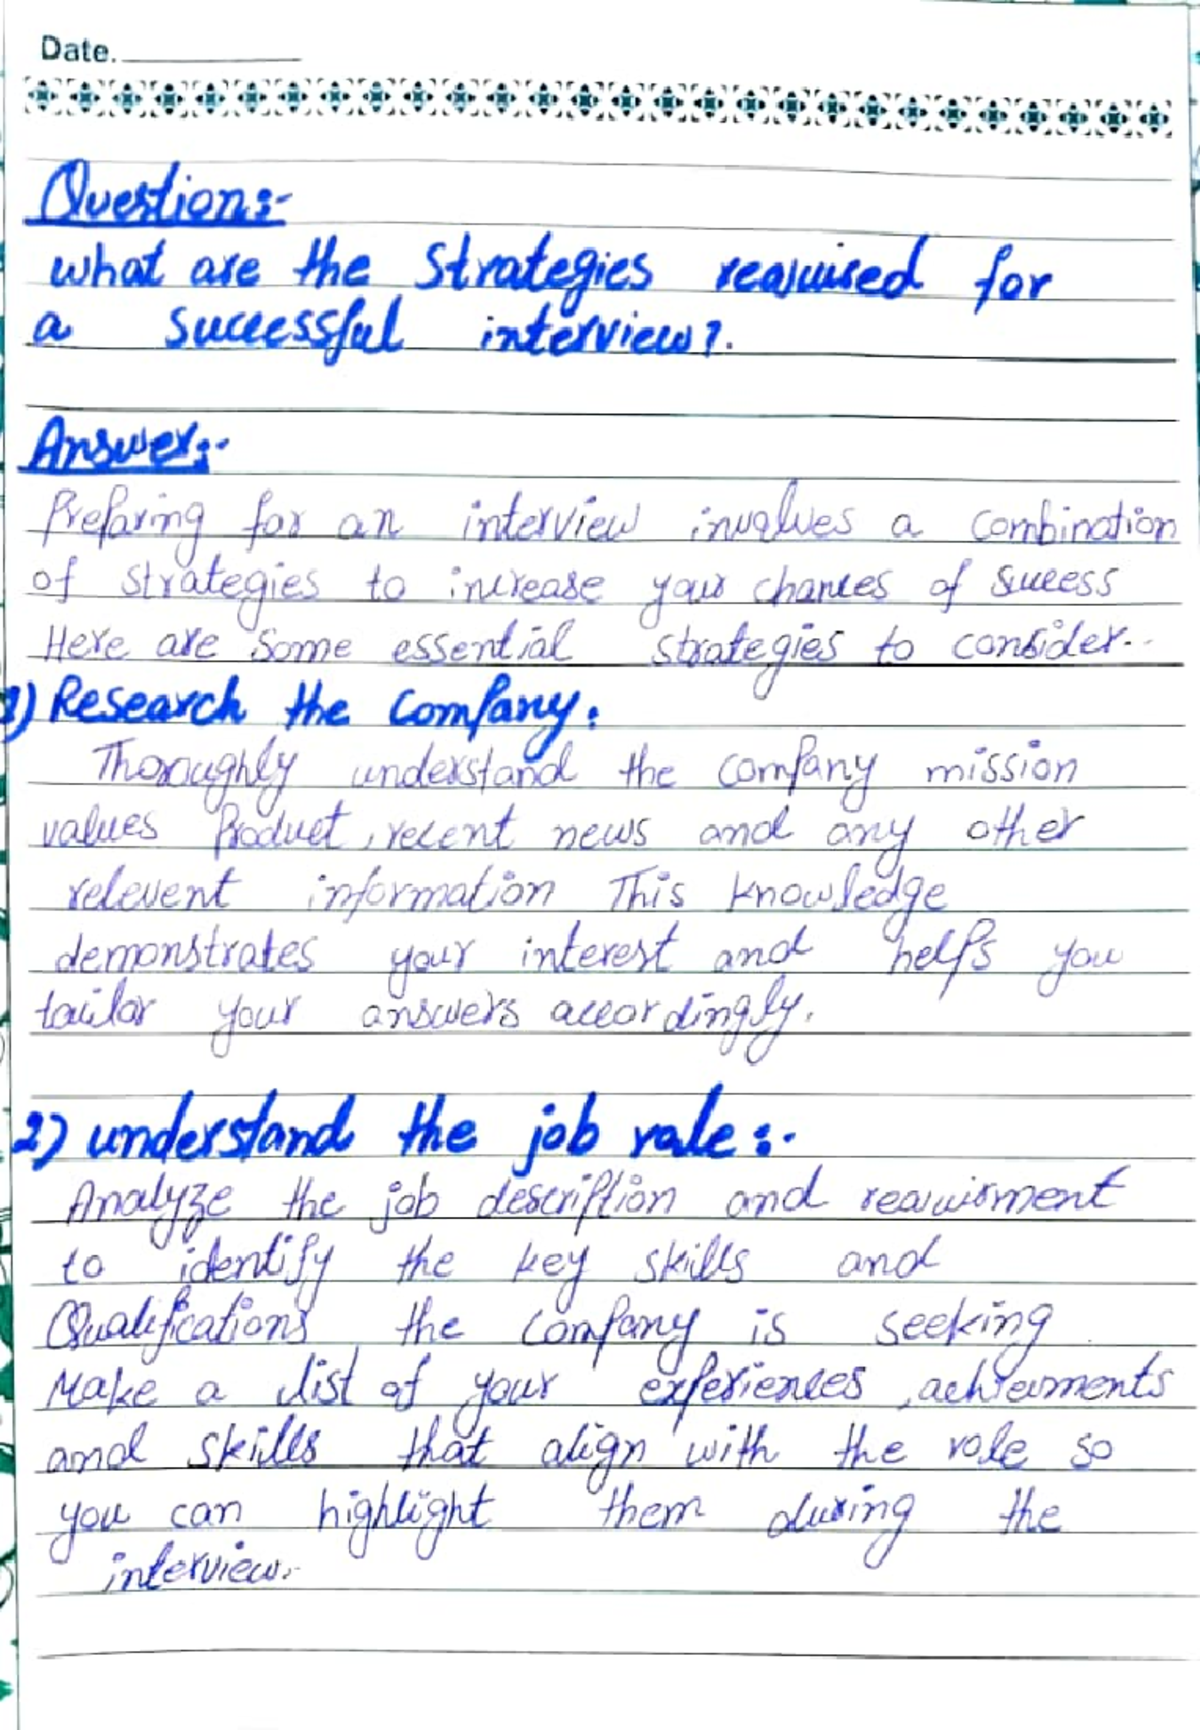 Date.
Questions:-
what are the Strategies reaquired for
a successful interview?.
Answer:-
Preparing for an interview involves a combination
of strategies to increase your chances of success
Here are some essential strategies to consider.-
1) Research the company:
Thoroughly understand the company mission
values product, recent news and any other
relevent information This knowledge
demonstrates your interest and helps you
tailor your answers accordingly.
2) understand the job role:-
Analyze the job description and reaquirment
to identify the key skills and
Qualifications the company is seeking
Make a list of your experiences, achievments
and skills that align with the role so
you can highlight them during the
interview.-